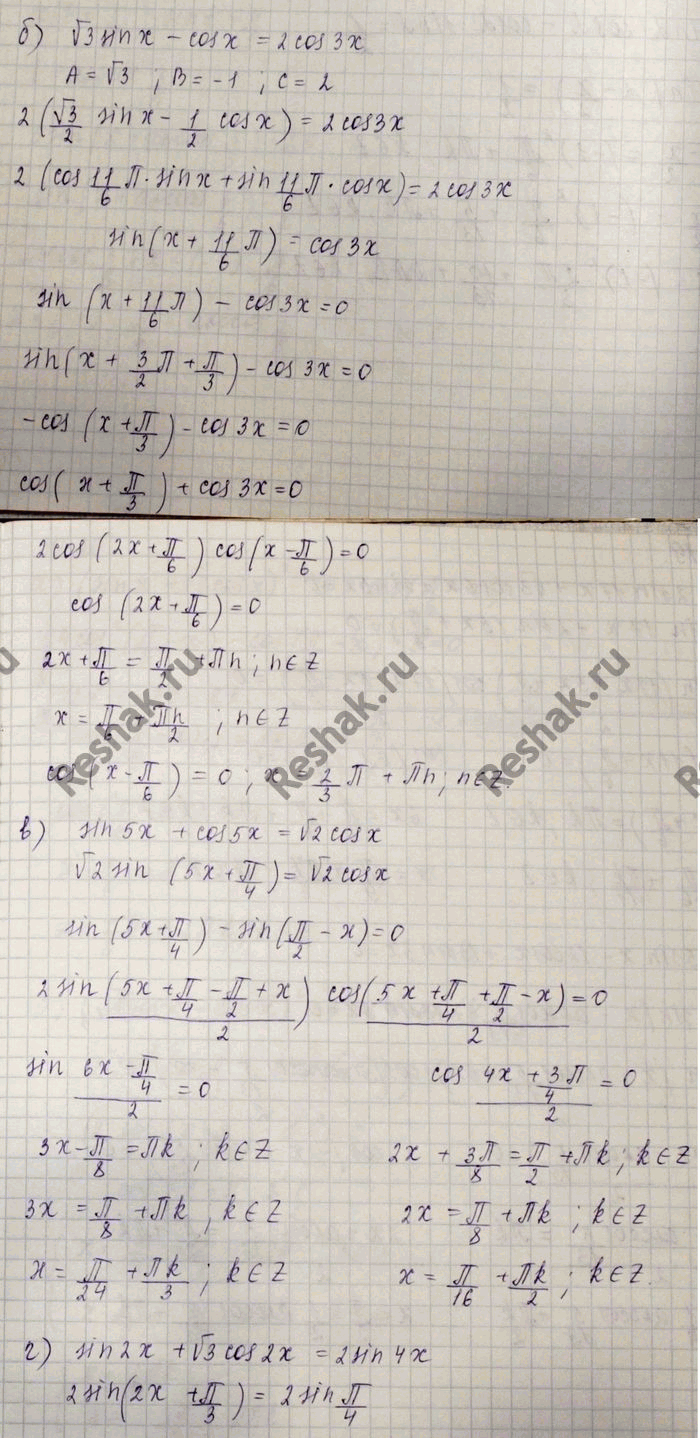 б) √3 sin x - cos x = 2 cos 3x
A = √3 ; B = -1 ; C = 2
2 (√3/2 sin x - 1/2 cos x) = 2 cos 3x
2 (cos 11/6 π · sin x + sin 11/6 π · cos x) = 2 cos 3x
sin (x + 11/6 π) = cos 3x
sin (x + 11/6 π) - cos 3x = 0
sin (x + 3/2 π + π/3) - cos 3x = 0
-cos (x + π/3) - cos 3x = 0
cos (x + π/3) + cos 3x = 0
2 cos (2x + π/6) cos (x - π/6) = 0
cos (2x + π/6) = 0
2x + π/6 = π/2 + πn ; n ∈ Z
x = π/6 + πn/2 ; n ∈ Z
cos (x - π/6) = 0 ; x = 2/3 π + πn ; n ∈ Z.
Reshak.ru Reshak.ru Reshak.ru
в) sin 5x + cos 5x = √2 cos x
√2 sin (5x + π/4) = √2 cos x
sin (5x + π/4) - sin (π/2 - x) = 0
2 sin (5x + π/4 - π/2 + x)/2 cos (5x + π/4 + π/2 - x)/2 = 0
sin (6x - π/4)/2 = 0 cos (4x + 3π/4)/2 = 0
3x - π/8 = πk ; k ∈ Z 2x + 3π/8 = π/2 + πk ; k ∈ Z
3x = π/8 + πk ; k ∈ Z 2x = π/8 + πk ; k ∈ Z
x = π/24 + πk/3 ; k ∈ Z x = π/16 + πk/2 ; k ∈ Z.
г) sin 2x + √3 cos 2x = 2 sin 4x
2 sin (2x + π/3) = 2 sin π/4